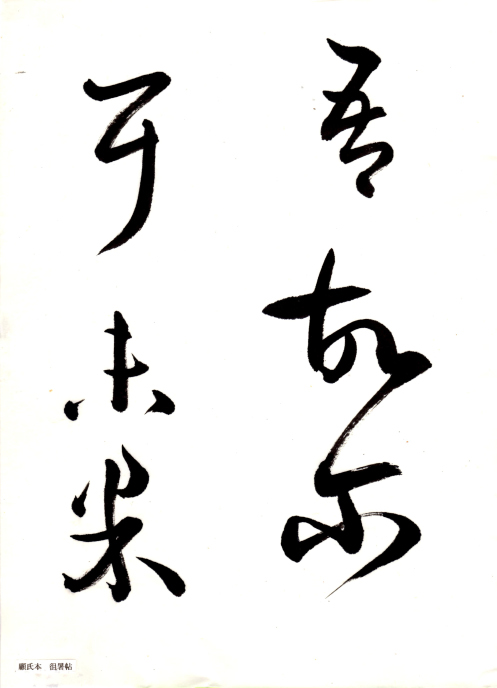 吾故尔
耳未果
顧氏本 徂暑帖